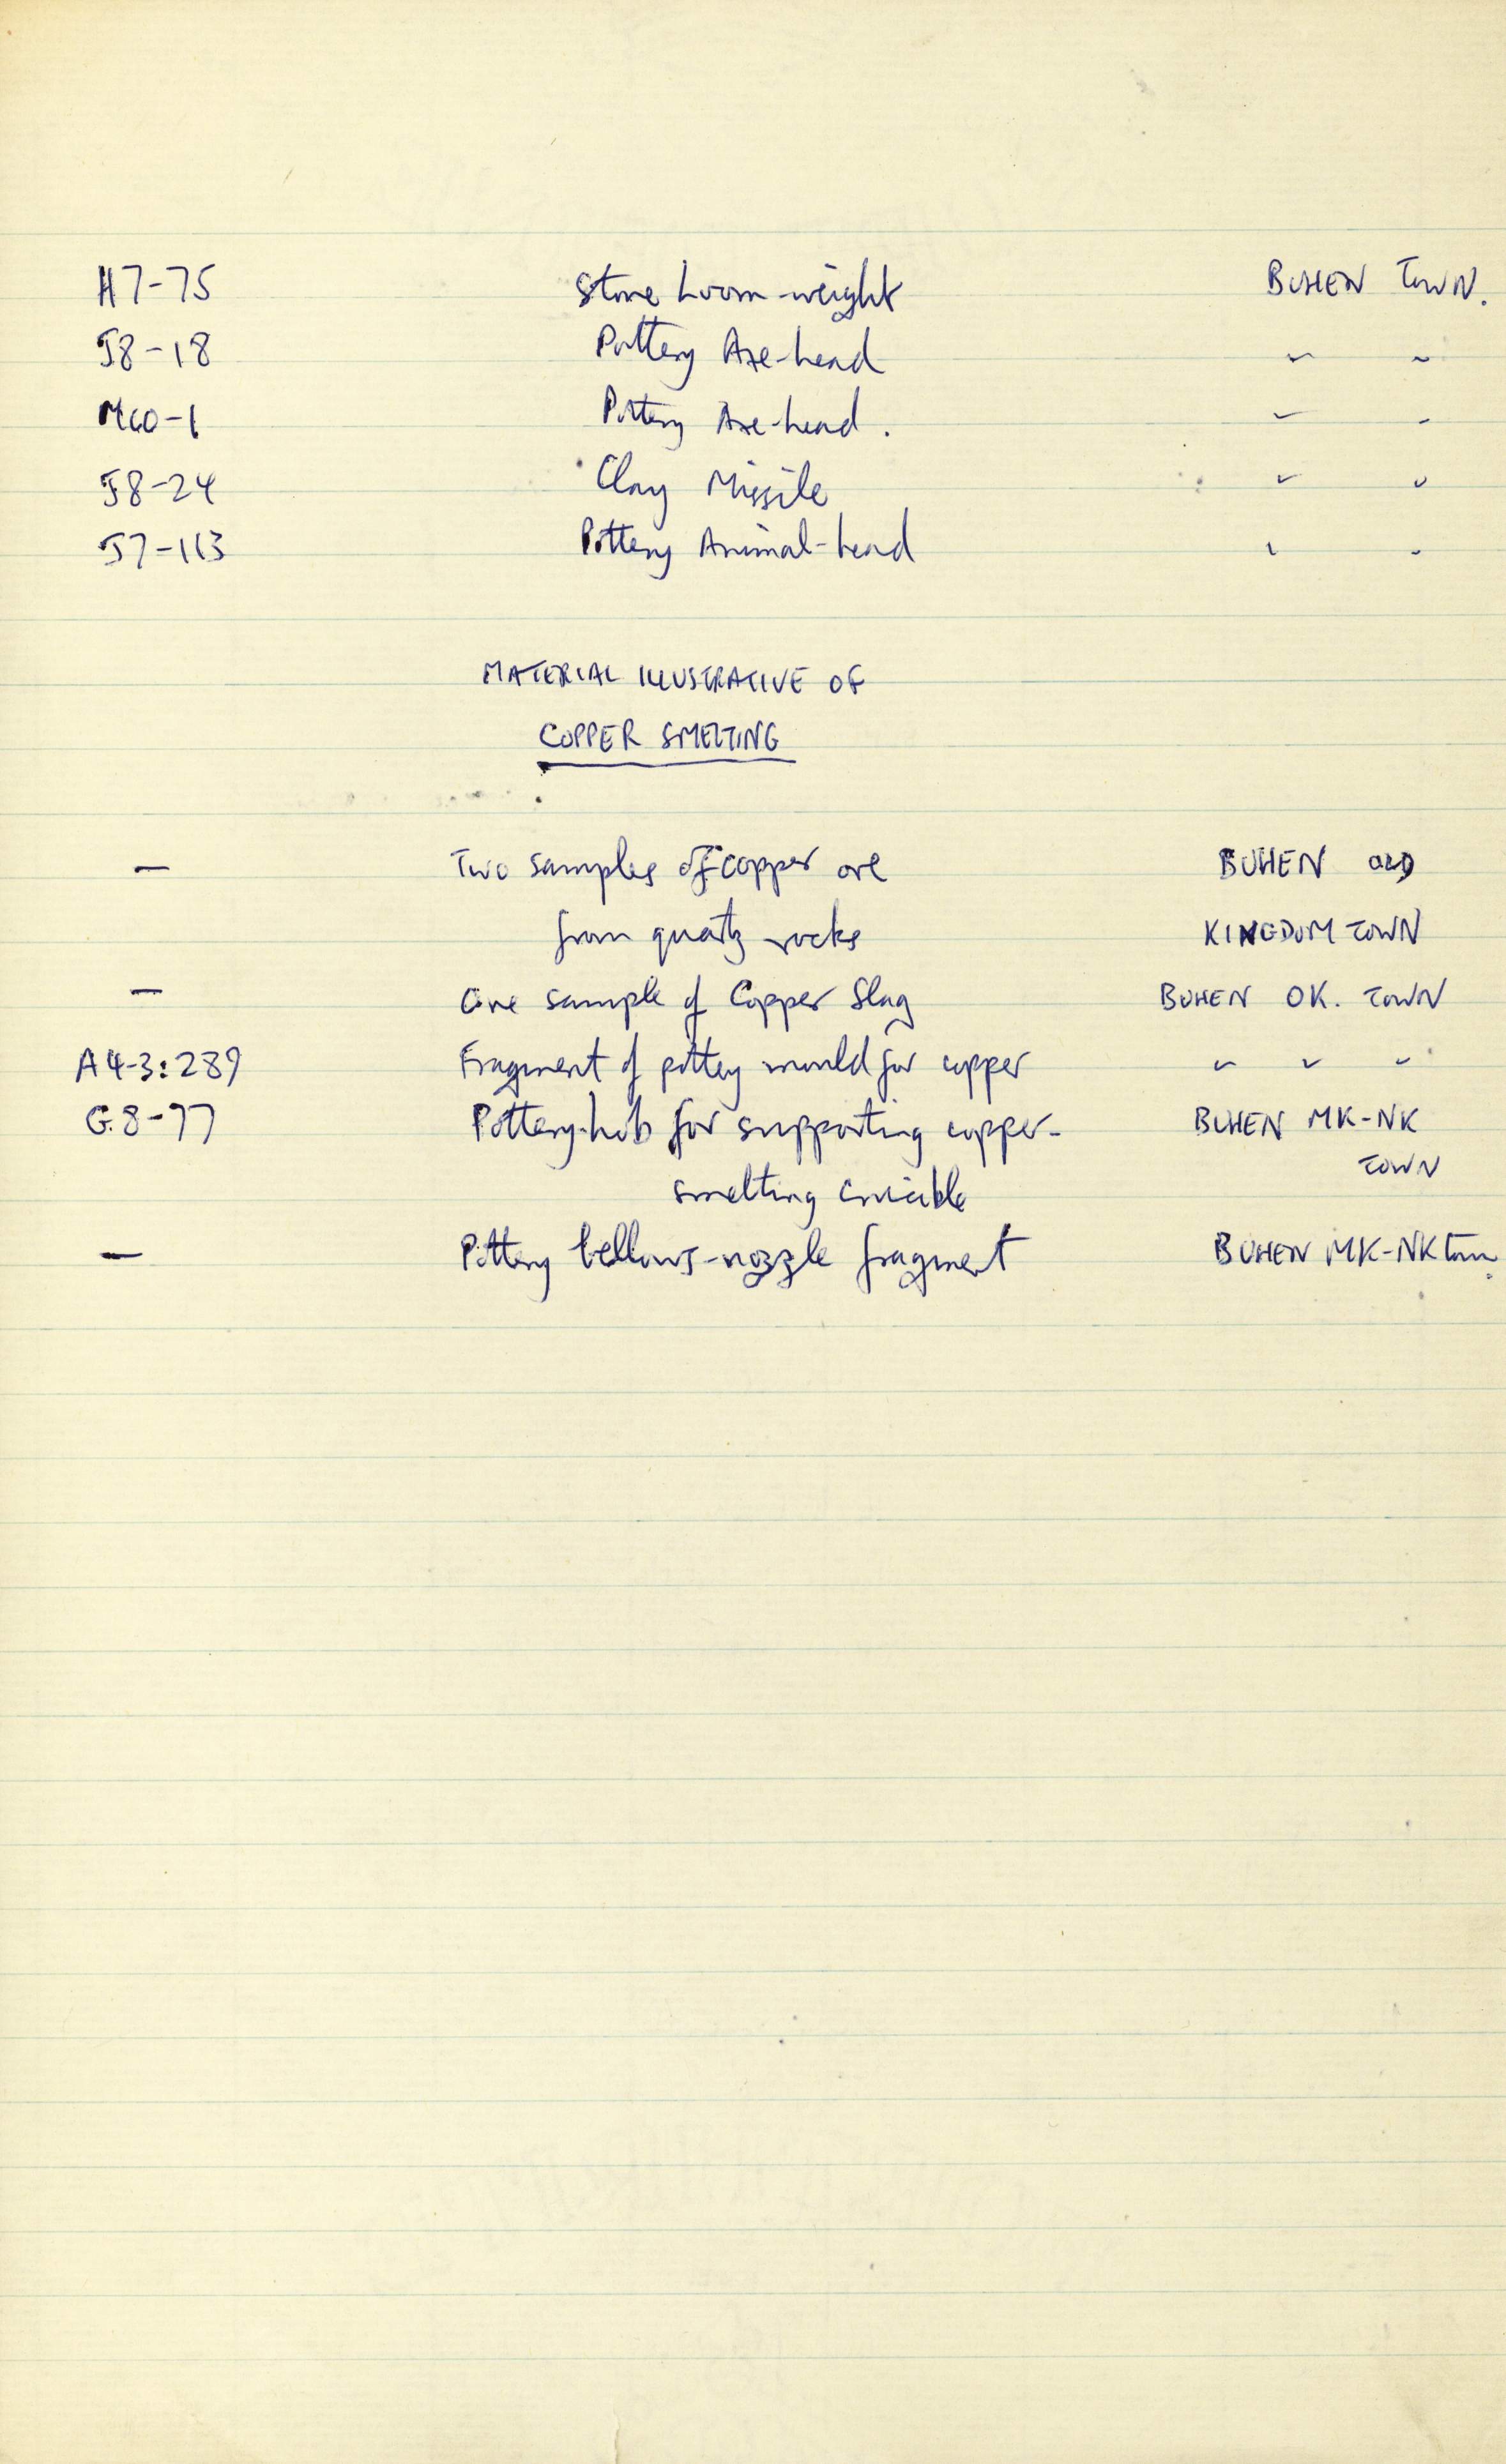 H7-75 Stone Loom-weight BUHEN TOWN.
J8-18 Pottery Axe-head " "
M60-1 Pottery Axe-head. " "
J8-24 Clay Missile " "
J7-113 Pottery Animal-head " "
MATERIAL ILLUSTRATIVE OF
COPPER SMELTING
— Two samples of copper ore BUHEN OLD
from quartz rocks KINGDOM TOWN
— One sample of Copper Slag BUHEN OK. TOWN
A4-3:289 Fragment of pottery mould for copper " " "
G.8-77 Pottery-hob for supporting copper- BUHEN MK-NK
TOWN
smelting crucible
— Pottery bellows-nozzle fragment BUHEN MK-NK town.